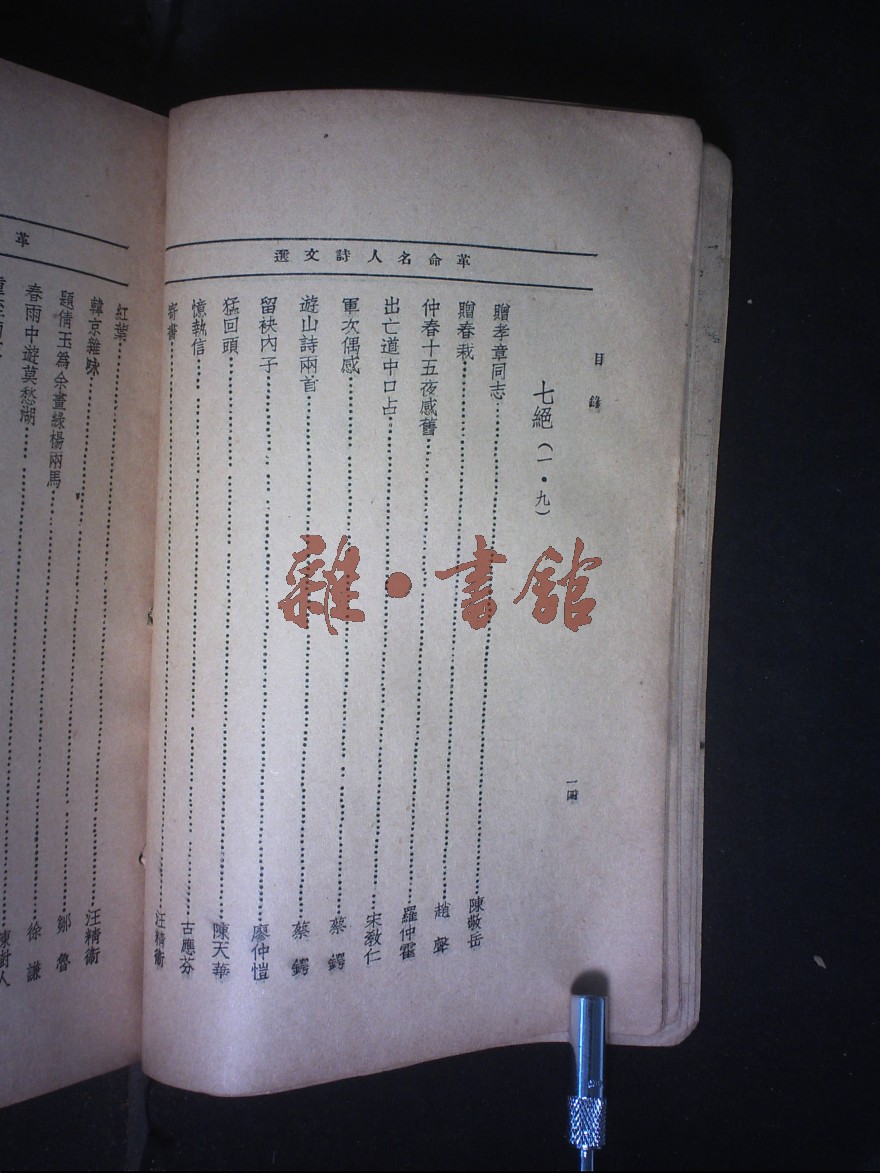 革命名人詩文選
目錄
一四
七絕(一·九)
贈孝章同志 陳敬岳
贈春栽 趙聲
仲春十五夜感舊 羅仲霍
出亡道中口占 宋教仁
軍次偶感 蔡鍔
遊山詩兩首 蔡鍔
留袂內子 廖仲愷
猛回頭 陳天華
憶執信 古應芬
書 汪精衛
革
紅葉 汪精衛
韓京雜咏 鄒魯
題倩玉為余畫綠楊兩馬 徐謙
春雨中遊莫愁湖 陳樹人
雜·書館